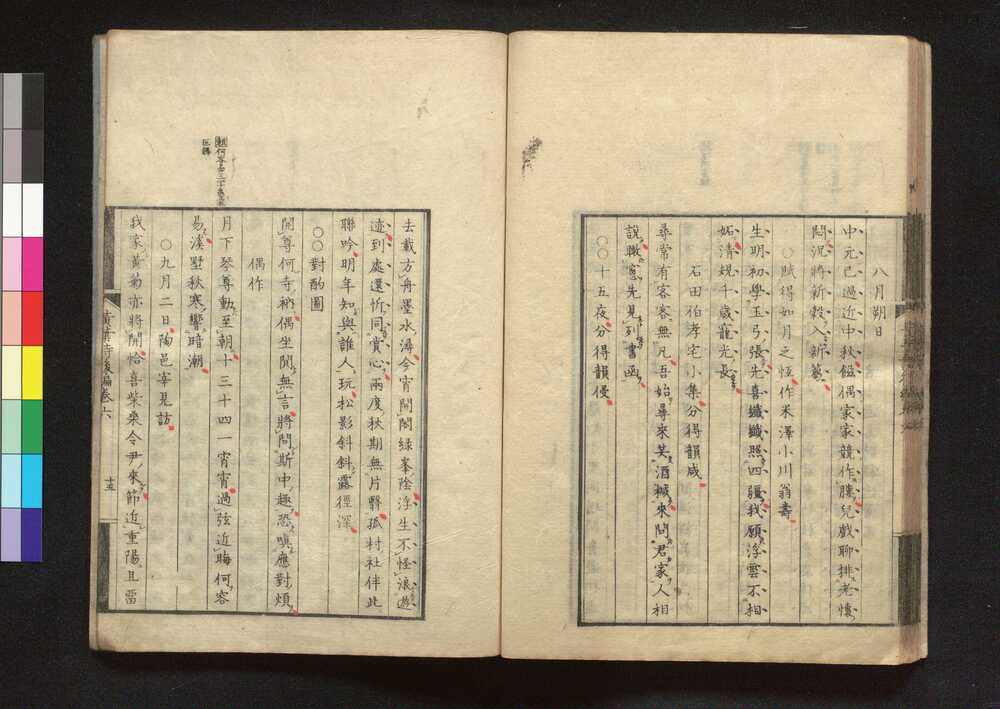 八月朔日
中元已過近中秋餽偶家家競作賸兒戲聊排老懷
悶況將新穀入新篘
○賦得如月之恆作米澤小川翁壽
生明初學玉弓張先喜纖纖照四疆我願浮雲不相
妬清娥千歲寵光長
石田伯孝宅小集分得韻咸
尋常有客客無凡吾始尋來笑酒椷來問君家人相
說瞰窓先見列書函
○○十五夜分得韻侵
去歲方舟墨水潯今宵閒閣綠峯陰浮生不怪浪遊
迹到處還忻同賞心兩度秋期無片翳孤村社伴此
聯吟明年知與誰人玩松影斜斜露徑深
○○對酌圖
開尊何寺衲偶坐閒無言將問斯中趣恐嗔應對煩
偶作
月下琴尊動至朝十三十四一宵宵過弦近晦何容
易溪墅秋寒響暗潮
○九月二日陶邑宰見訪
我家黃菊亦將開恰喜柴桑令尹來節近重陽且留
後編卷六
十五